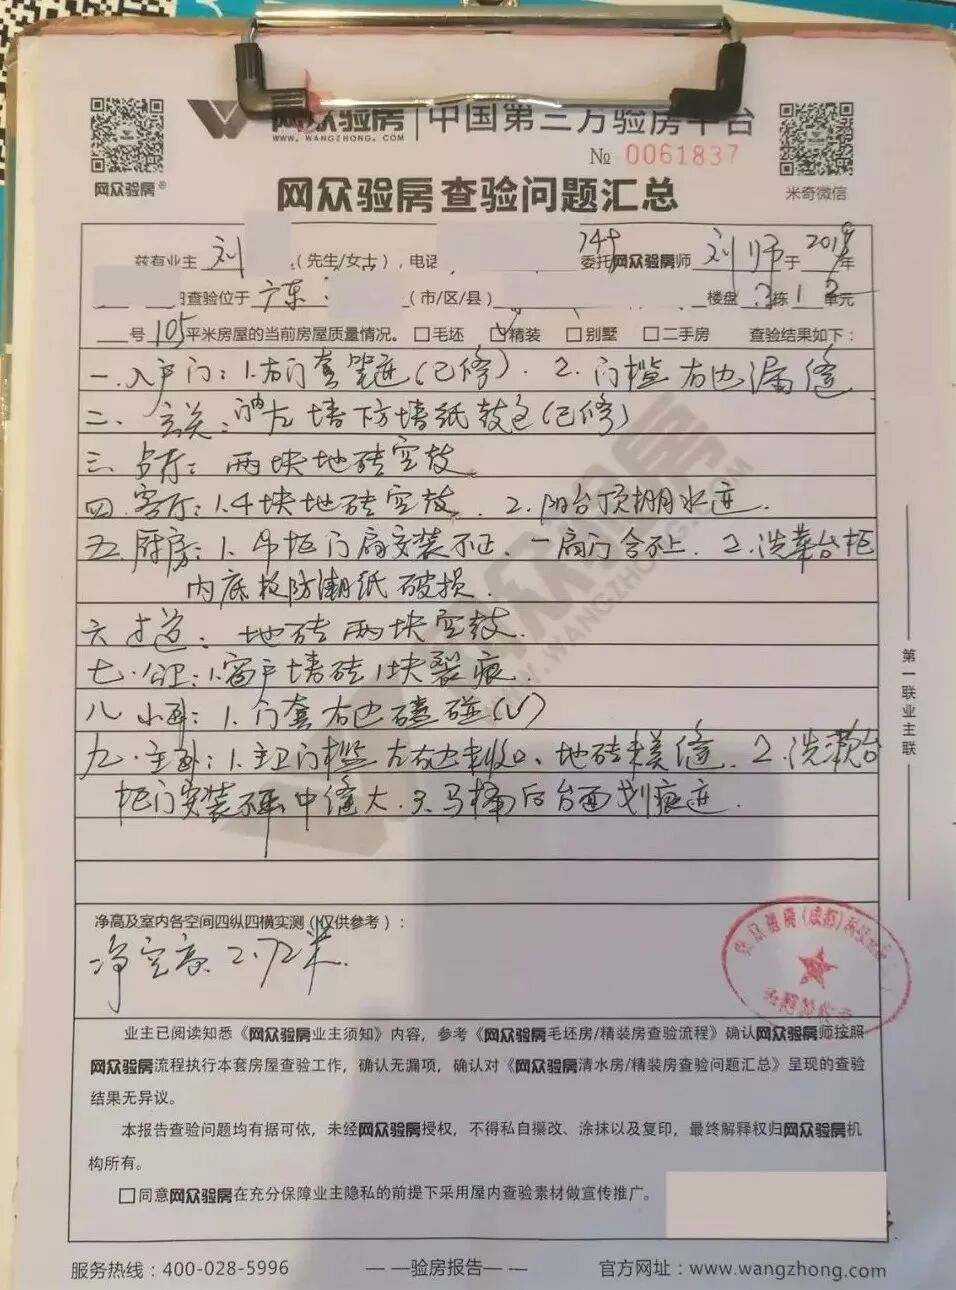 网众验房 | 中国第三方验房平台
WWW.WANGZHONG.COM
№ 0061837
网众验房®
米奇微信
网众验房查验问题汇总
兹有业主 刘 (先生/女士),电话 委托网众验房师 刘师 于 2019 年
日查验位于 广东 (市/区/县) 楼盘 3 栋 1 单元
号 105 平米房屋的当前房屋质量情况。 □毛坯 ☑精装 □别墅 □二手房 查验结果如下:
一.入户门:1.右门套笔迹(已修). 2. 门槛右边漏缝
二、玄关:左墙下方墙纸鼓包(已修)
三 餐厅:两块地砖空鼓
四.客厅:1.4块地砖空鼓 2.阳台顶棚水迹.
五.厨房:1.吊柜门扇安装不正、一扇门合不上. 2.洗菜台柜
内底板防潮纸破损.
六 过道:地砖两块空鼓.
七.公卫:1.窗户墙砖1块裂痕
八 小卧:1.门套右边磕碰(√)
九.主卧:1.主卫门槛左右边未收口、地砖未美缝. 2.洗漱台
柜门安装不平中缝大.3.马桶后台面划痕迹.
净高及室内各空间四纵四横实测(仅供参考):
净空高 2.72米.
业主已阅读知悉《网众验房业主须知》内容,参考《网众验房毛坯房/精装房查验流程》确认网众验房师按照
网众验房流程执行本套房屋查验工作,确认无漏项,确认对《网众验房清水房/精装房查验问题汇总》呈现的查验
结果无异议。
本报告查验问题均有据可依,未经网众验房授权,不得私自攥改、涂抹以及复印,最终解释权归网众验房机
构所有。
□同意网众验房在充分保障业主隐私的前提下采用屋内查验素材做宣传推广。
第一联业主联
服务热线:400-028-5996
— —验房报告— —
官方网址:www.wangzhong.com